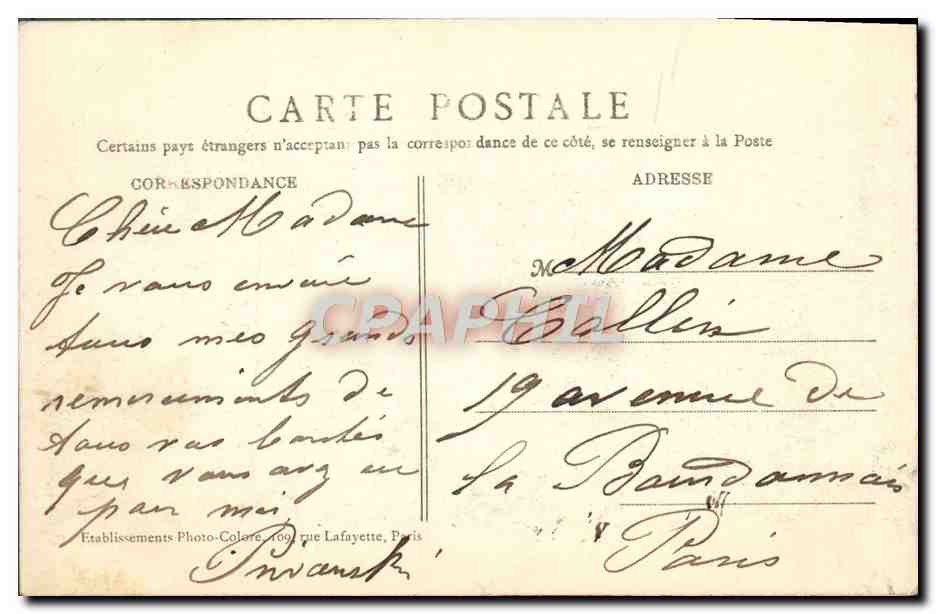 CARTE POSTALE
Certains pays étrangers n'acceptant pas la correspondance de ce côté, se renseigner à la Poste
CORRESPONDANCE
Chère Madame
Je vous envoie
tous mes grands
remerciments de
tous vos bontés
que vous avez eu
pour moi
Etablissements Photo-Coloré, 109, rue Lafayette, Paris
ADRESSE
M Madame
Collin
19 avenue de
la Bourdonnais
Paris
CPAPHIL